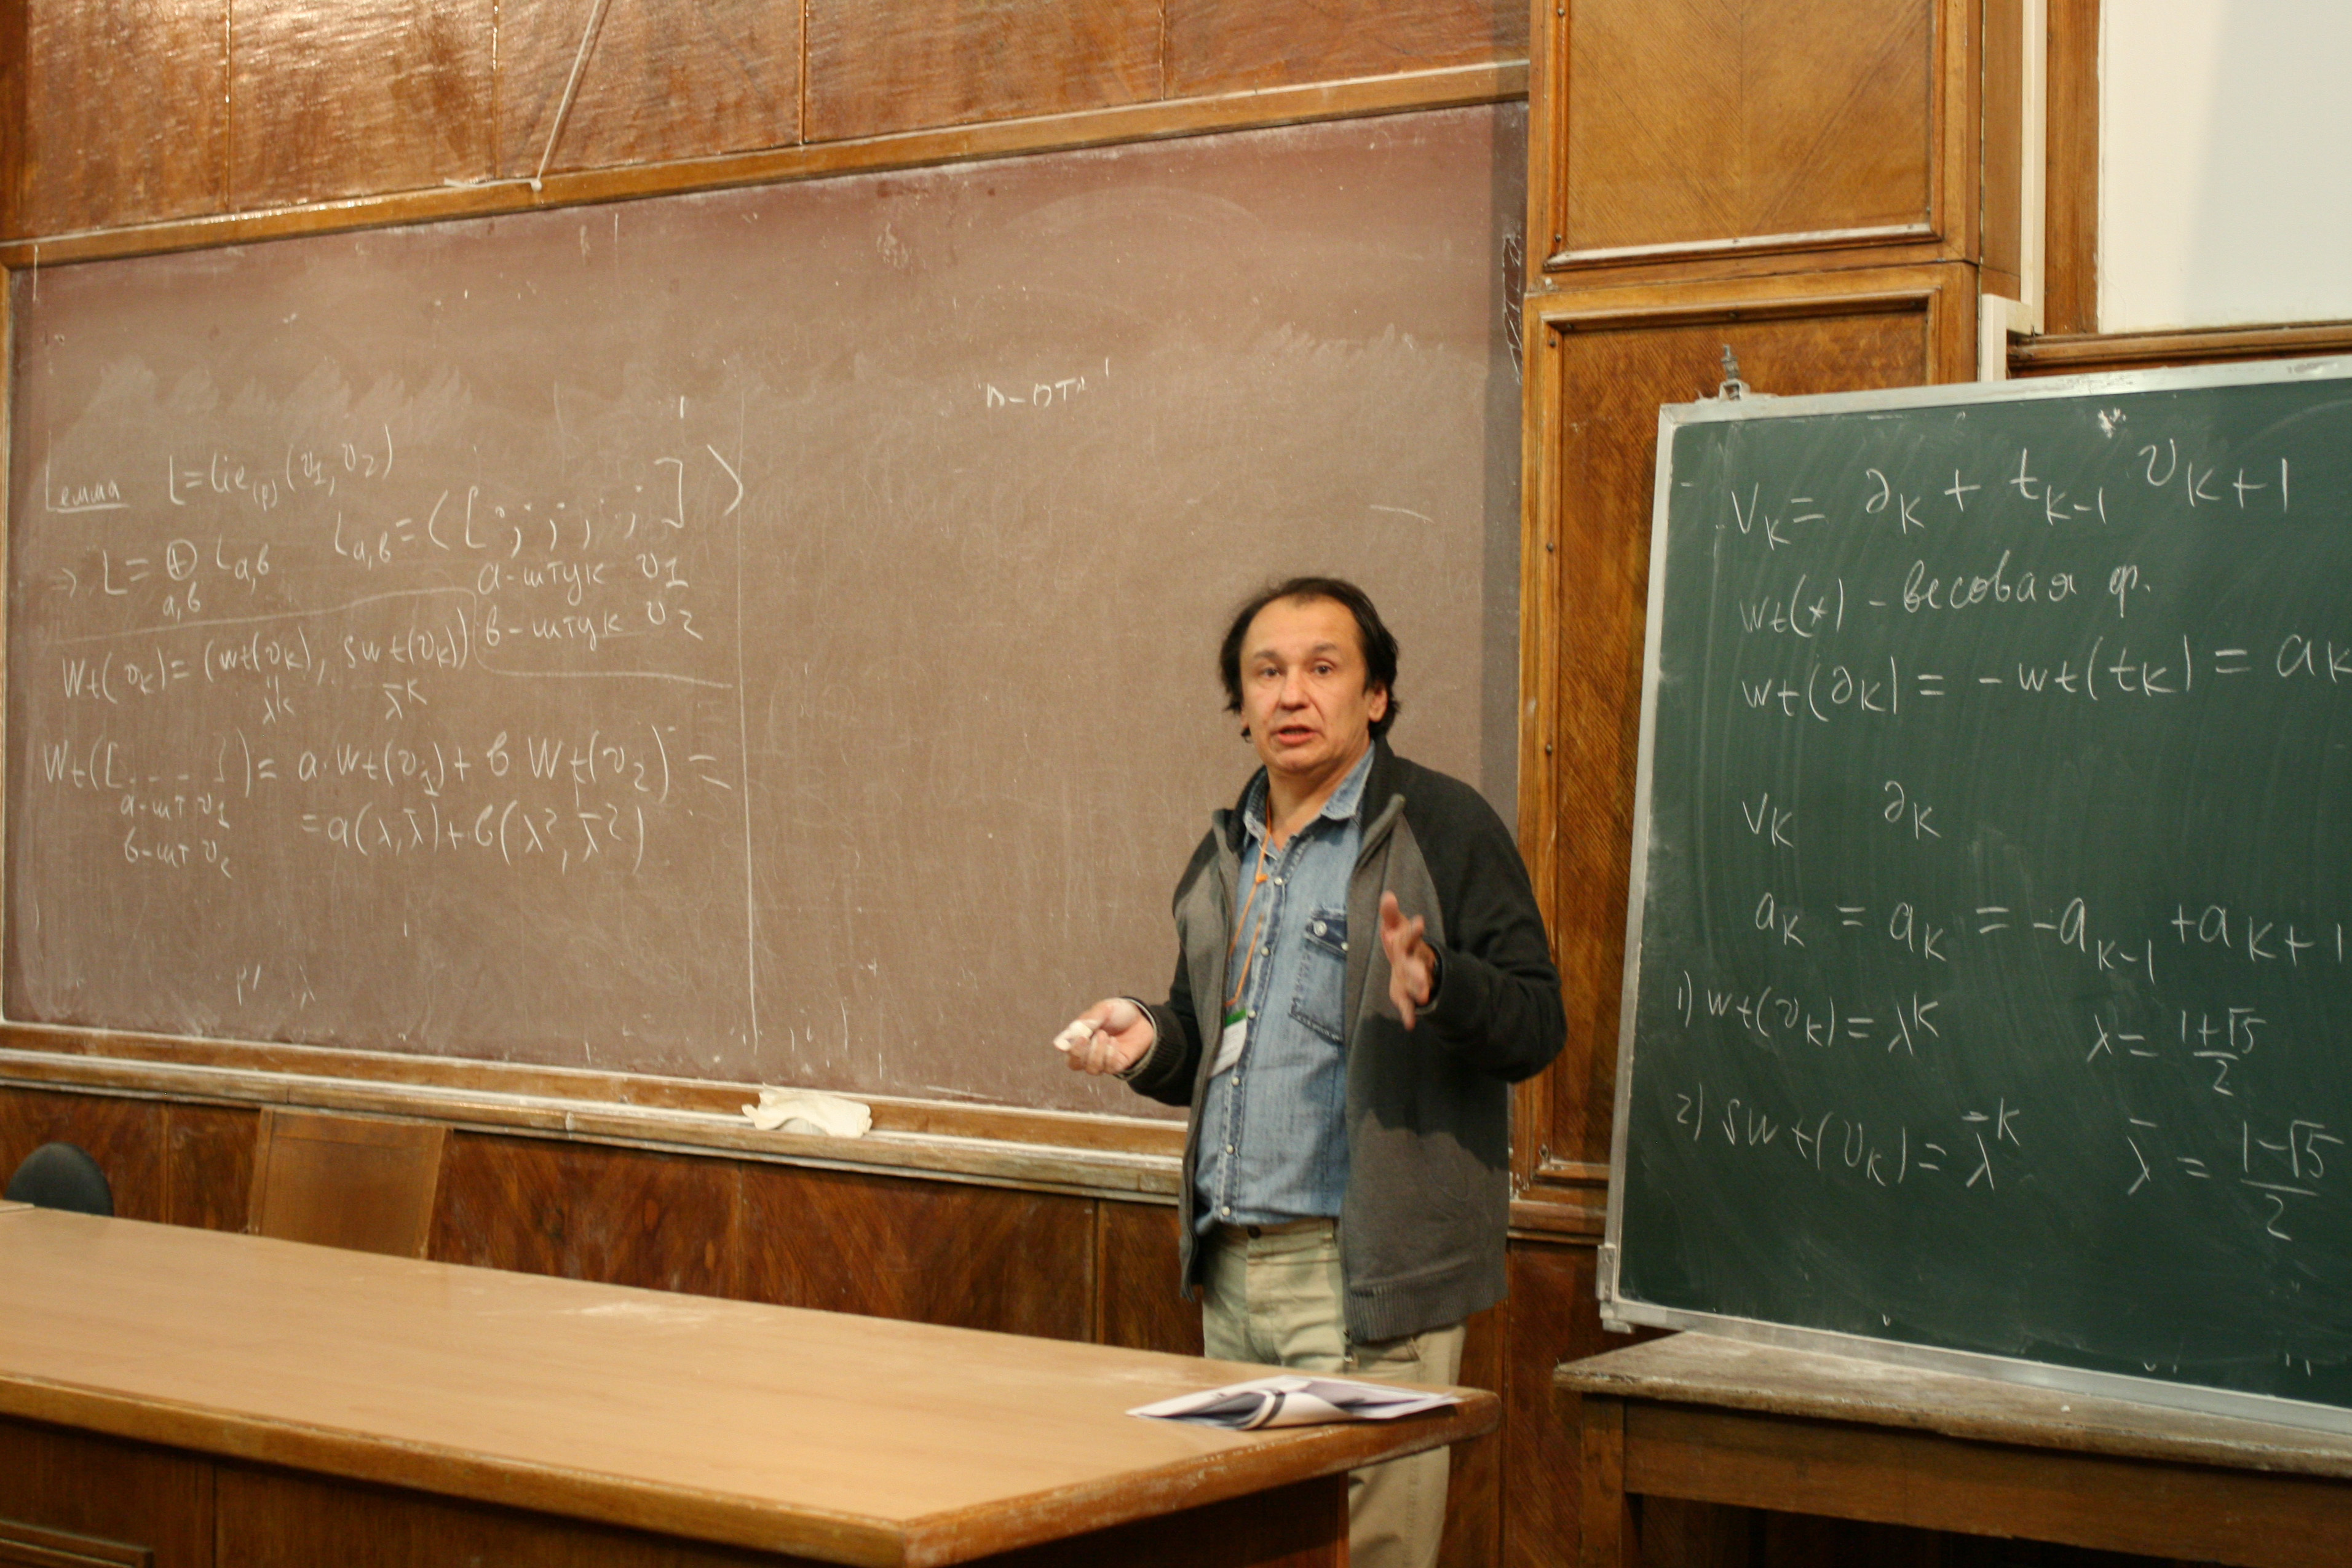 Лемма L = Lie₍ₚ₎(v₁, v₂)
⇒ L = ⊕ L_{a,b} L_{a,b} = ⟨[ ; ; ; ; ]⟩
a,b
a-штук v₁
b-штук v₂
Wt(v_k) = (wt(v_k), swt(v_k))
λ^k λ̄^k
Wt([. . - -]) = a·Wt(v₁) + b Wt(v₂) =
a-шт v₁
b-шт v₂
= a(λ, λ̄) + b(λ², λ̄²)
v_k = ∂_k + t_{k-1} v_{k+1}
wt(*) - весовая ф.
wt(∂_k) = -wt(t_k) = a_k
v_k ∂_k
a_k = a_k = -a_{k-1} + a_{k+1}
1) wt(v_k) = λ^k λ = (1+√5)/2
2) swt(v_k) = λ̄^k λ̄ = (1-√5)/2